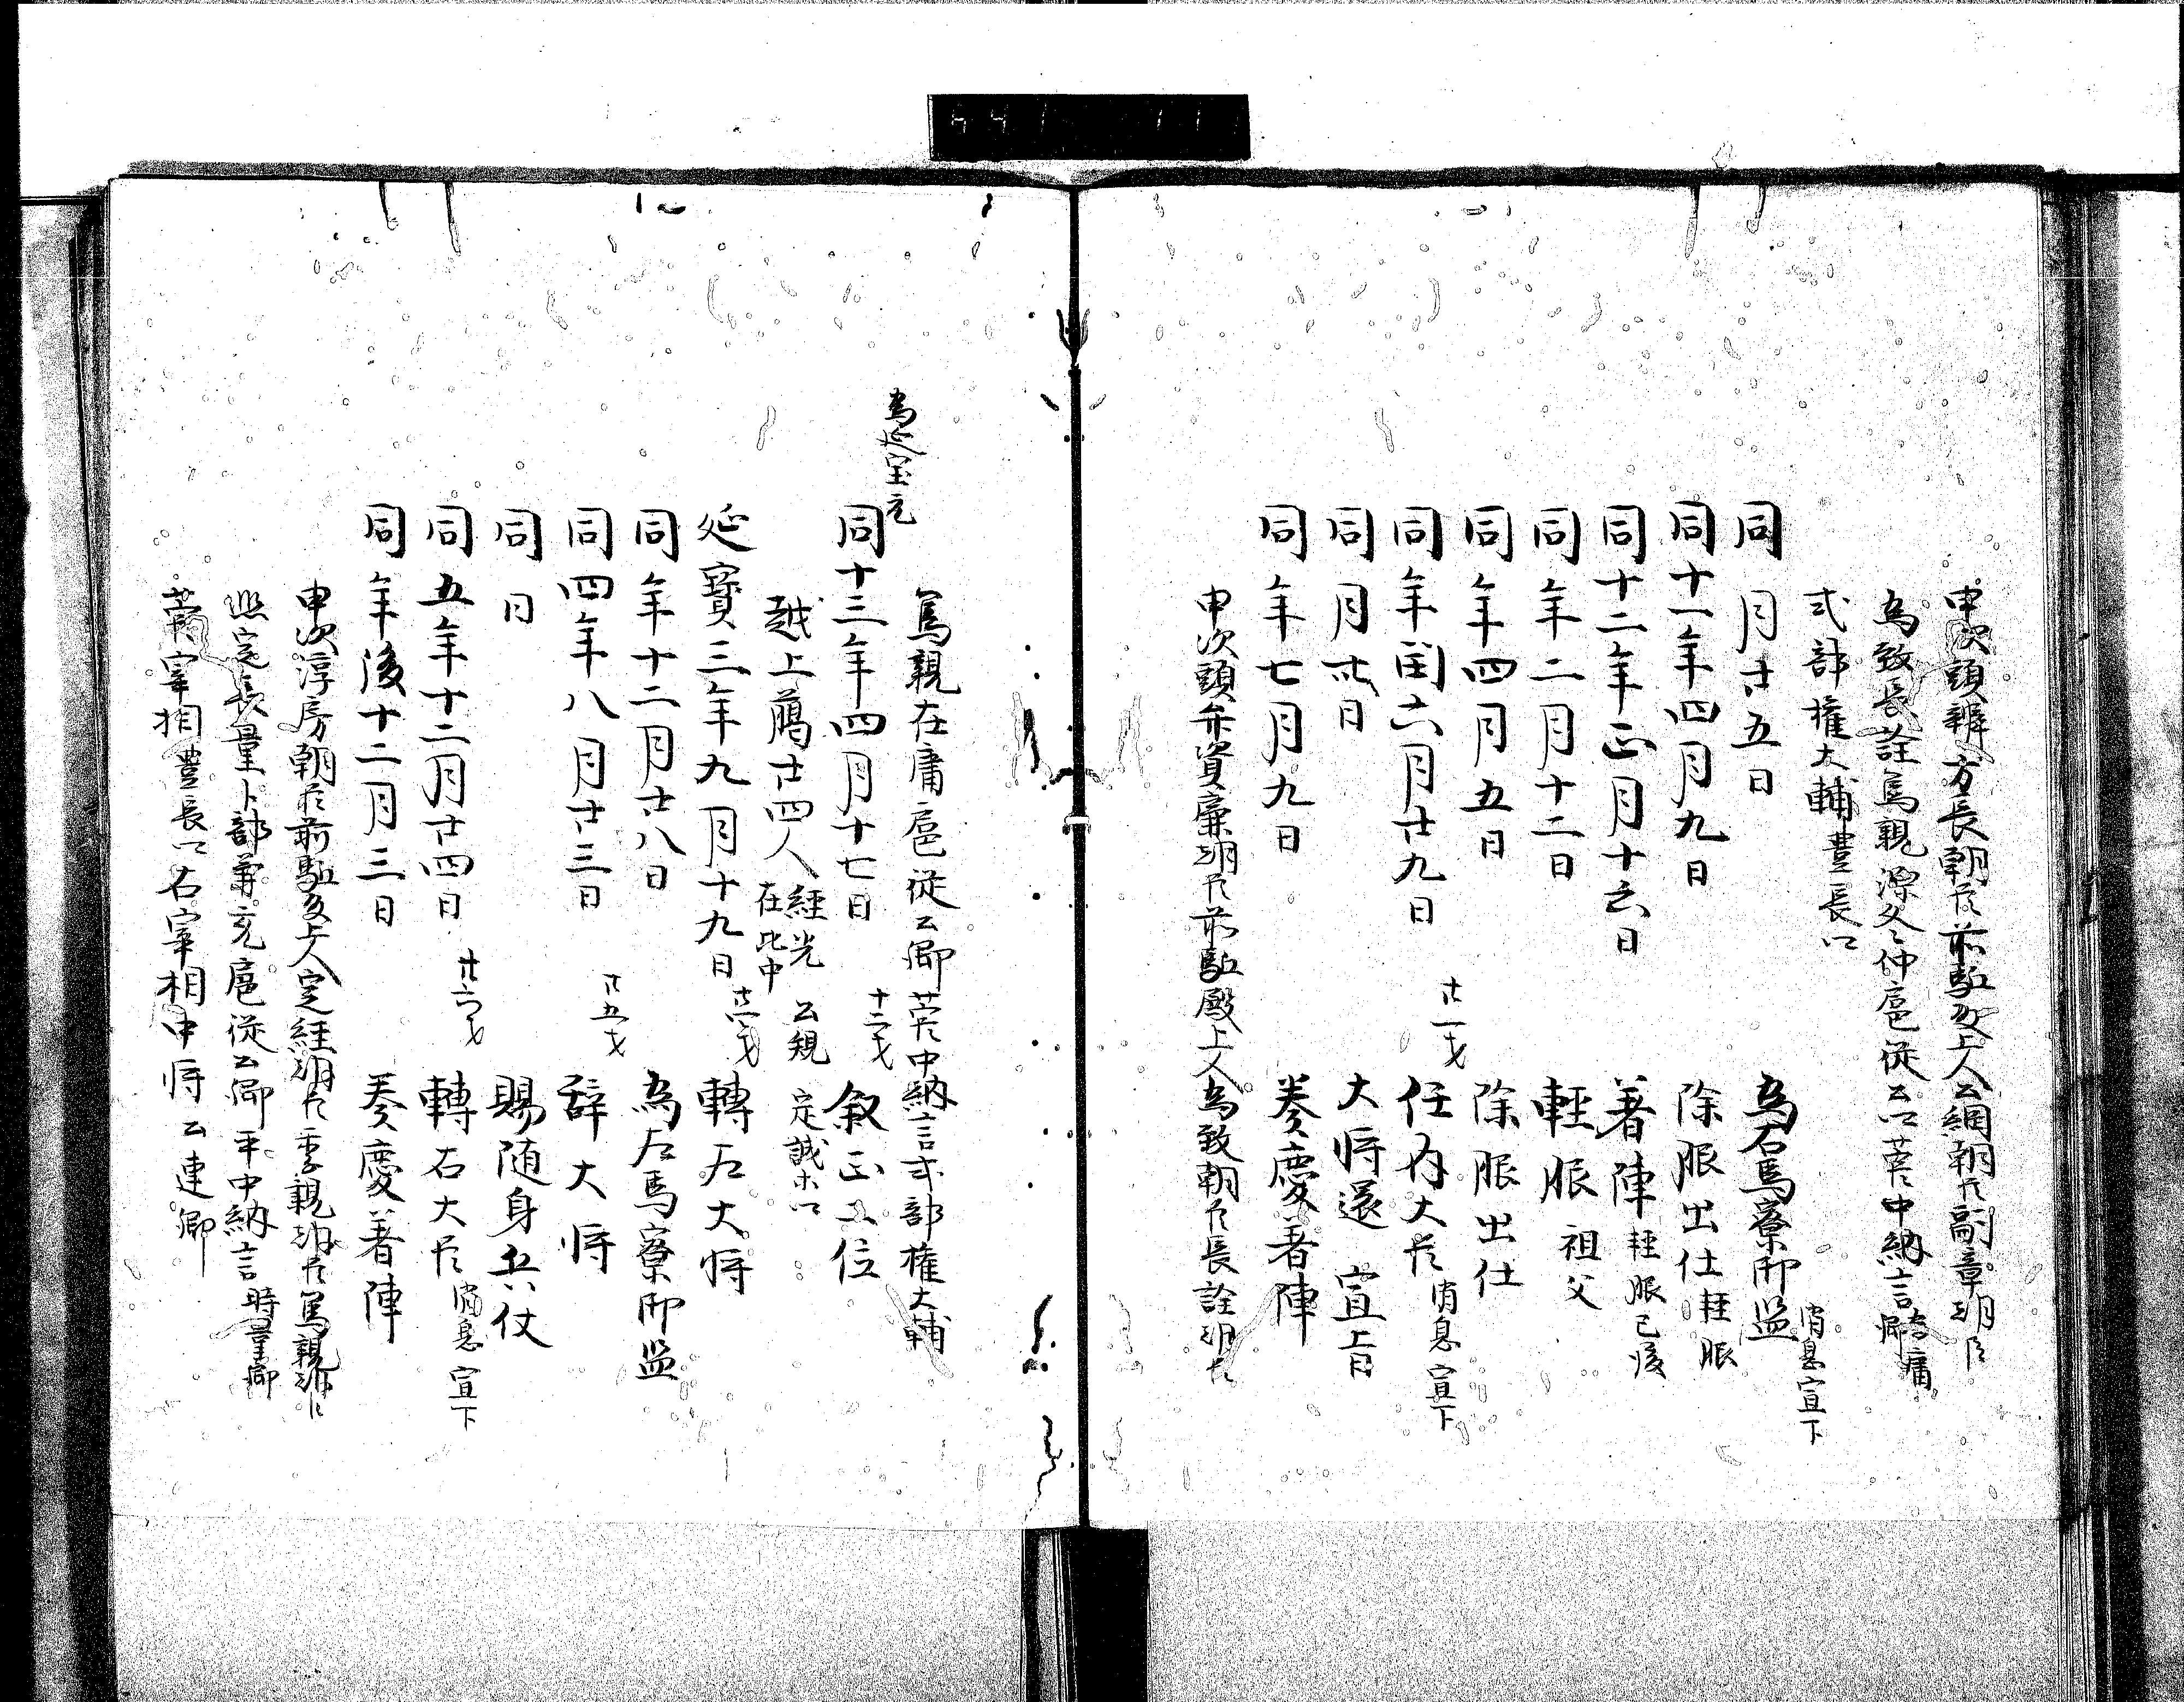 申次頭辨方長朝臣前駈殿上人公綱朝臣嗣章朝臣
為致長詮為親源久仲扈従公卿菅中納言為庸卿
式部権大輔豊長卿
同月廿五日 為右馬寮御監 消息宣下
同十一年四月九日 除服出仕 軽服
同十二年正月十六日 著陣 軽服已後
同年二月十二日 軽服 祖父
同年四月五日 除服出仕
同年閏六月廿九日 廿一才 任内大臣 消息宣下
同月廿八日 大将還宣旨
同年七月九日 奏慶著陣
申次頭弁資廉朝臣前駈殿上人為致朝臣長詮朝臣
為親在庸扈従公卿菅中納言式部権大輔
為延宝元
同十三年四月十七日 十二才 叙正二位
越上﨟廿四人 経光 公規 定誠卿 在此中
延寳三年九月十九日 転左大将
同年十二月廿八日 為左馬寮御監
同四年八月廿三日 廿五才 辞大将
同日 賜随身兵仗
同五年十二月廿四日 廿六才 轉右大臣 消息宣下
同年後十二月三日 奏慶著陣
申次淳房朝臣前駈殿上人定経朝臣季親朝臣為親朝臣
定長量卜部兼充扈従公卿平中納言時量卿
菅宰相豊長卿右宰相中将公連卿